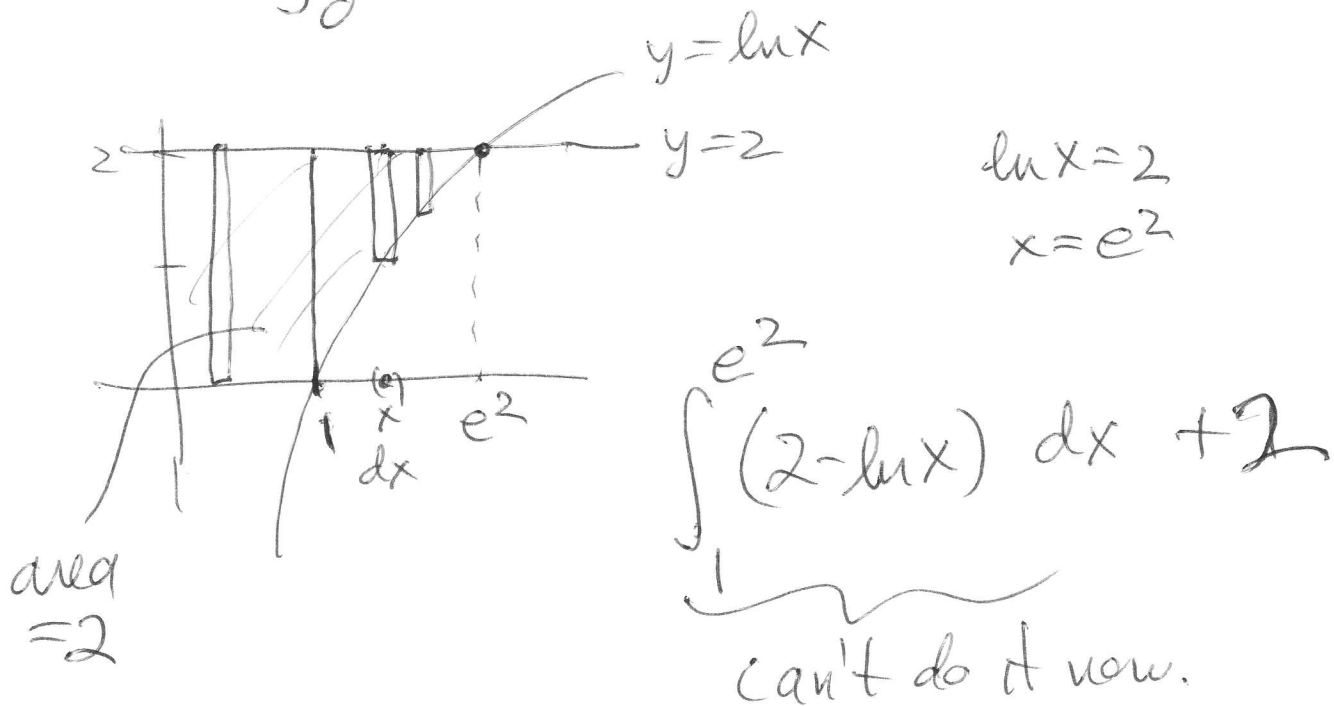 y = ln x
2
y = 2
ln x = 2
x = e²
1
x
e²
dx
∫₁^(e²) (2 - ln x) dx + 2
area
= 2
can't do it now.